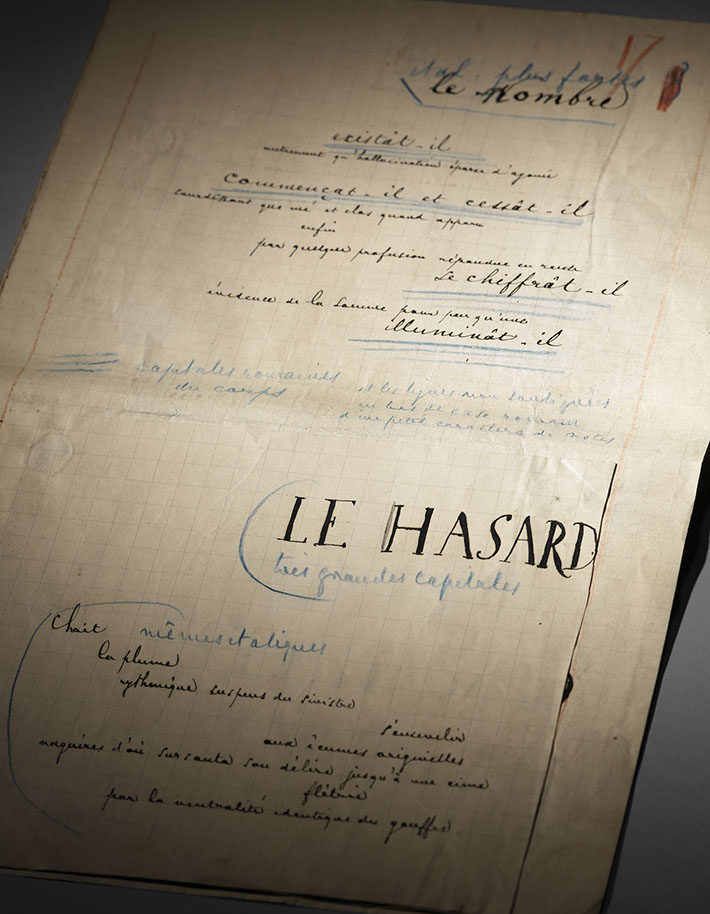 17
ital. plus fortes
le Nombre
existât-il
autrement qu'hallucination éparse d'agonie
commençât-il et cessât-il
sourdant que nié et clos quand apparu
enfin
par quelque profusion répandue en rareté
se chiffrât-il
évidence de la somme pour peu qu'une
illuminât-il
capitales romaines
du corps
et les lignes non soulignées
en bas de casse romain
d'un petit caractère de notes
LE HASARD
très grandes capitales
Choit mêmes italiques
la plume
rythmique suspens du sinistre
s'ensevelir
aux écumes originelles
naguères d'où sursauta son délire jusqu'à une cime
flétrie
par la neutralité identique du gouffre